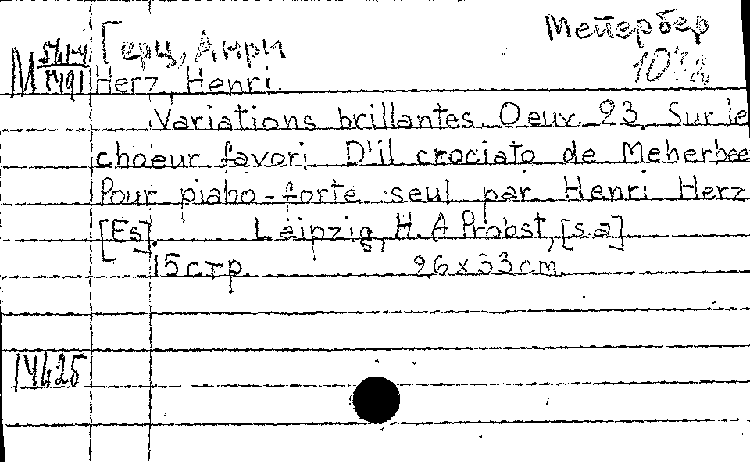 Мейербер
Герц, Анри
М
Herz, Henri.
Variations brillantes. Oeuv. 23. Sur le
choeur favori D'il crociato de Meherbee
Pour piano-forte seul par Henri Herz
[Es]. Leipzig, H. A Probst, [s.a]
15 стр. 26x33cm.
14625